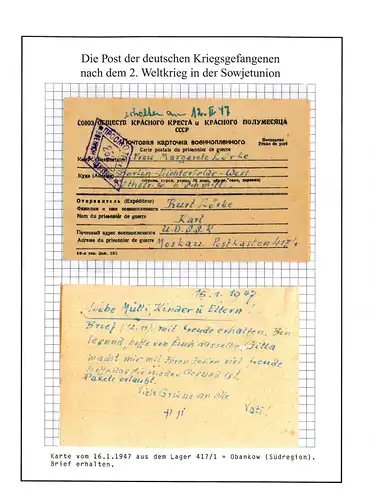 Die Post der deutschen Kriegsgefangenen
nach dem 2. Weltkrieg in der Sowjetunion
erhalten am 12. II 47
СОЮЗ ОБЩЕСТВ КРАСНОГО КРЕСТА и КРАСНОГО ПОЛУМЕСЯЦА
СССР
Почтовая карточка военнопленного
Carte postale du prisonnier de guerre
Бесплатно
Franc de port
Кому (Destinataire) Frau Margarete Lörke
Куда (Adresse) Berlin-Lichterfelde-West
Отправитель (Expéditeur)
Фамилия и имя военнопленного Kurt Lörke
Nom du prisonnier de guerre Karl
Почтовый адрес военнопленного U.D.S.S.R.
Adresse du prisonnier de guerre Moskau Postkasten 417/1
16.1.1947
Liebe Mutti, Kinder u Eltern!
Brief mit Freude erhalten. Bin
gesund, hoffe von Euch dasselbe.
macht mir mit Ihren viel Freude
Gesund ist.
Pakete erlaubt.
Viele Grüße an alle
Vati!
Karte vom 16.1.1947 aus dem Lager 417/1 = Obankow (Südregion).
Brief erhalten.